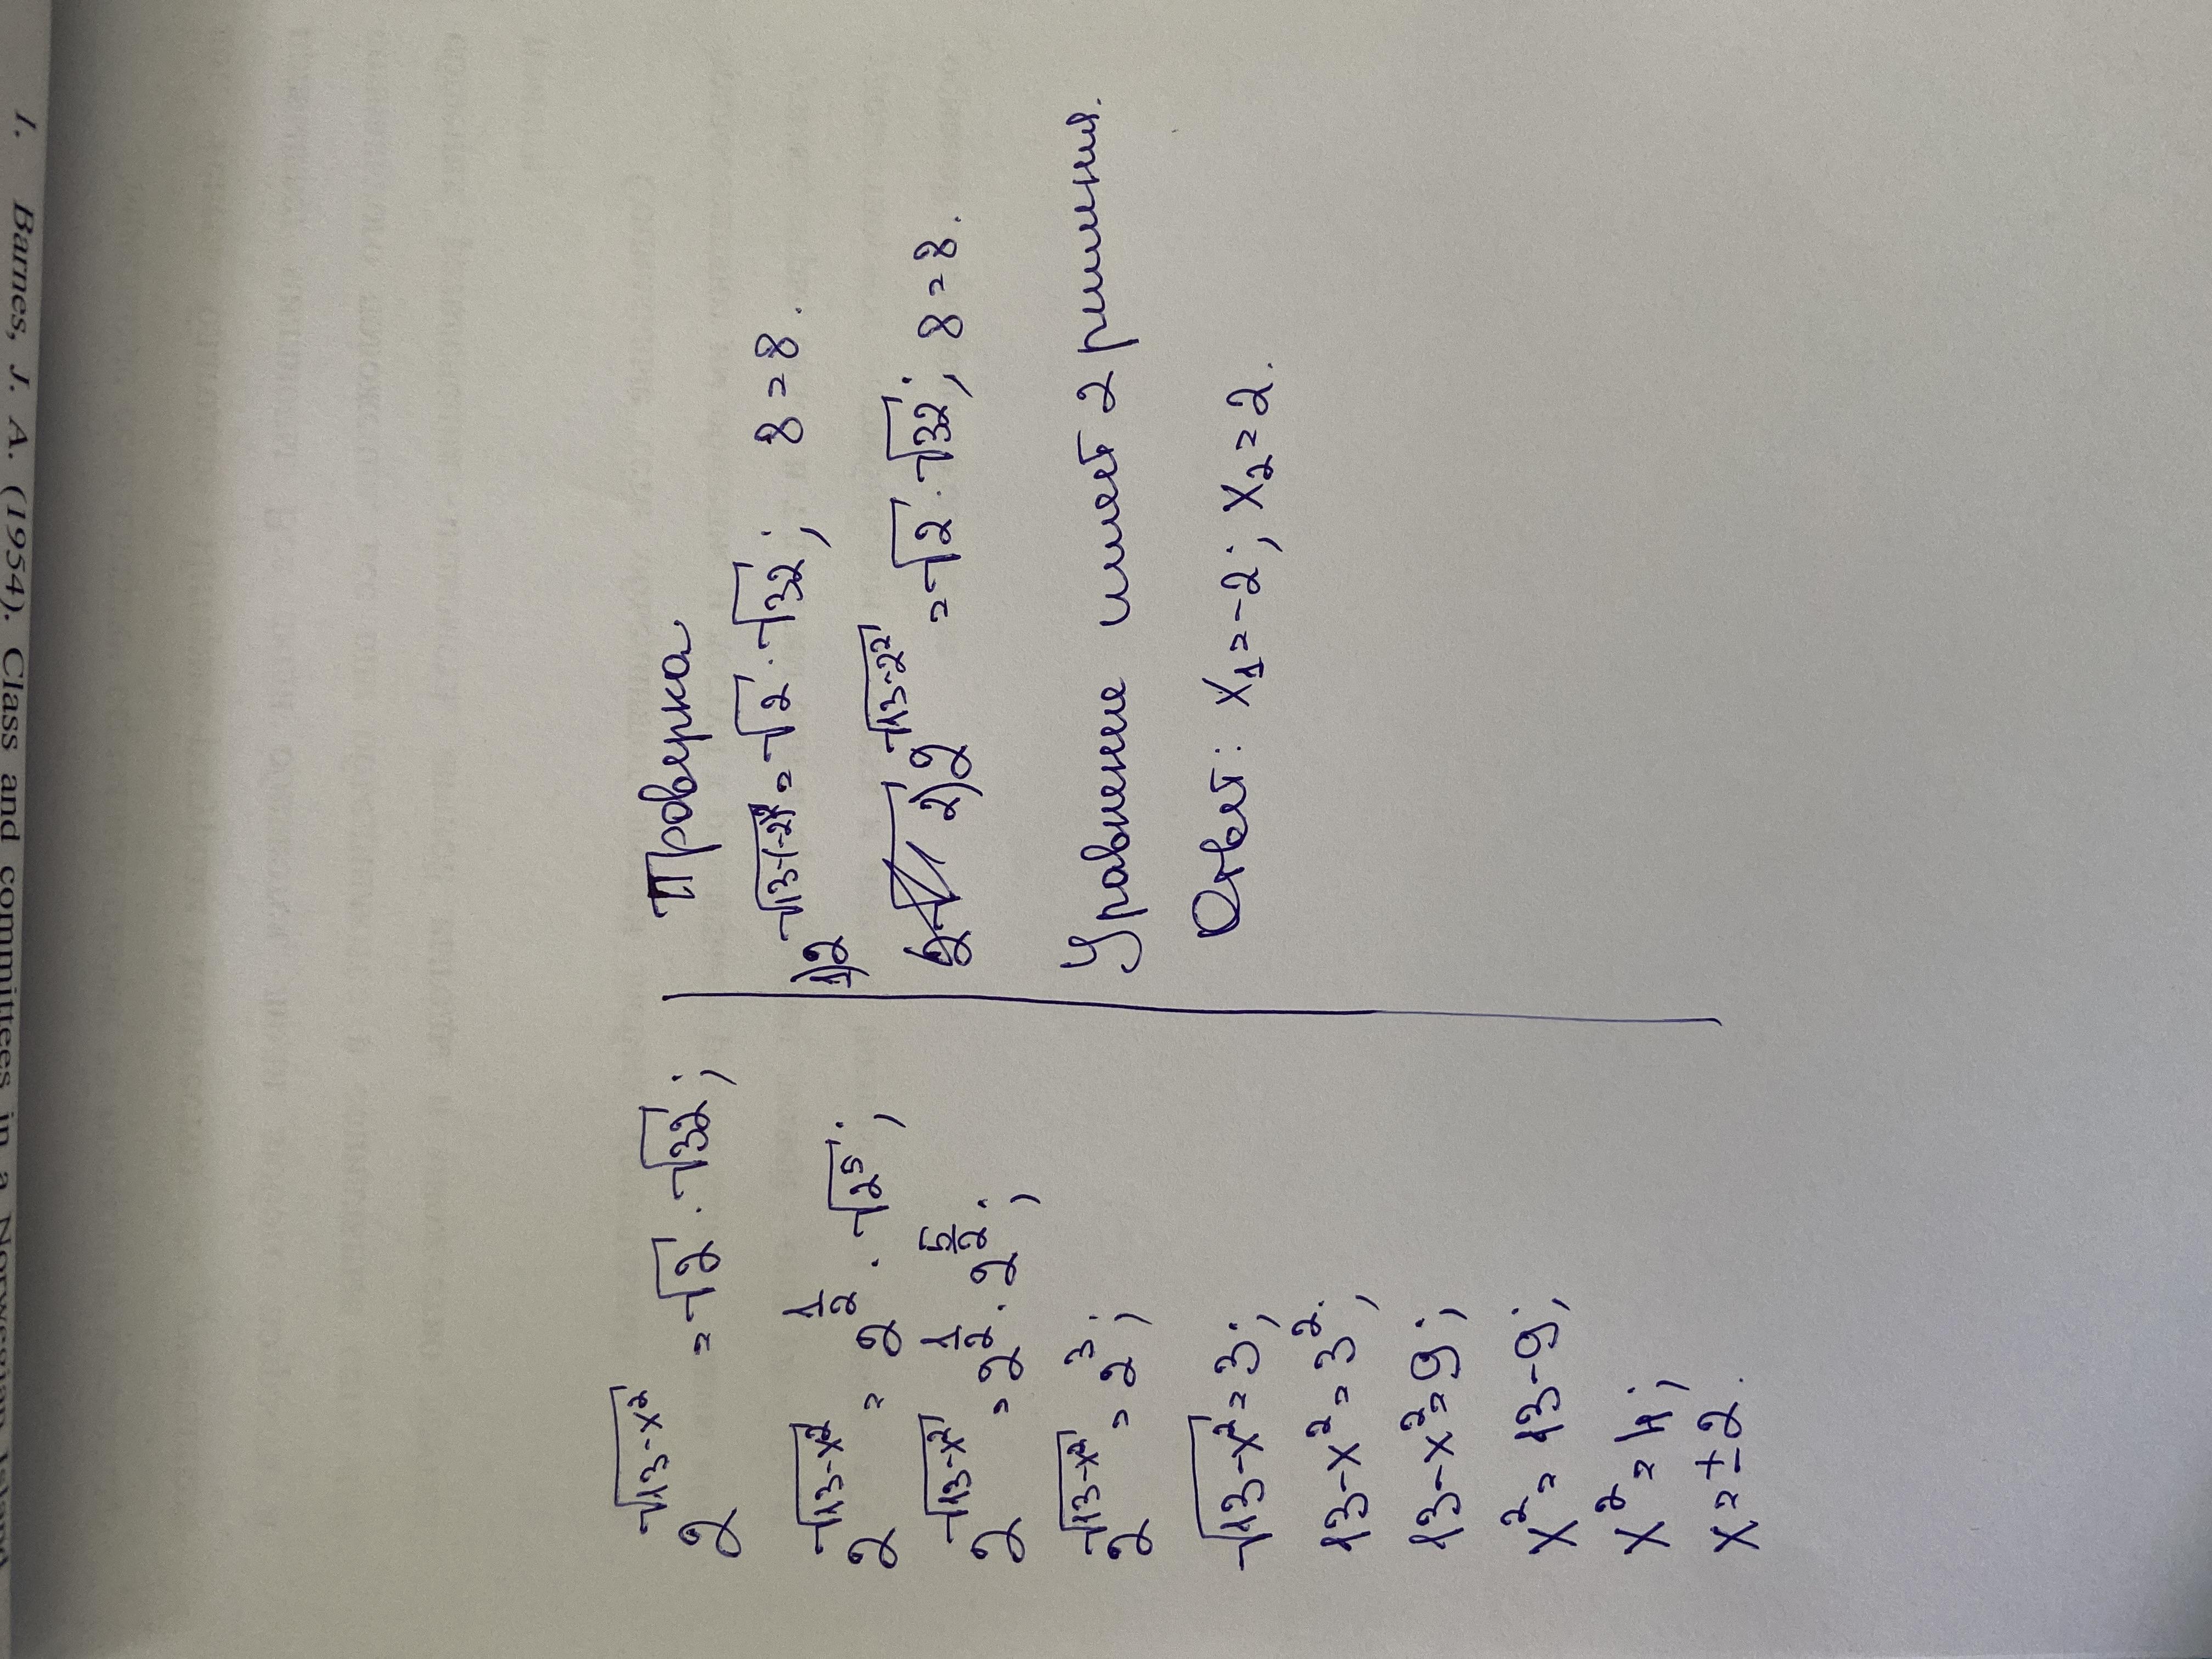 1. Barnes, J. A. (1954). Class and committees in a Norwegian Island
2^√(13-x²) = √2 · √32;
2^√(13-x²) = 2^(1/2) · √(2⁵);
2^√(13-x²) = 2^(1/2) · 2^(5/2);
2^√(13-x²) = 2³;
√(13-x²) = 3;
13-x² = 3²;
13-x² = 9;
x² = 13-9;
x² = 4;
x = ±2.
Проверка
1) 2^√(13-(-2)²) = √2 · √32; 8=8.
2) 2^√(13-2²) = √2 · √32; 8=8.
Уравнение имеет 2 решения.
Ответ: x₁=-2; x₂=2.